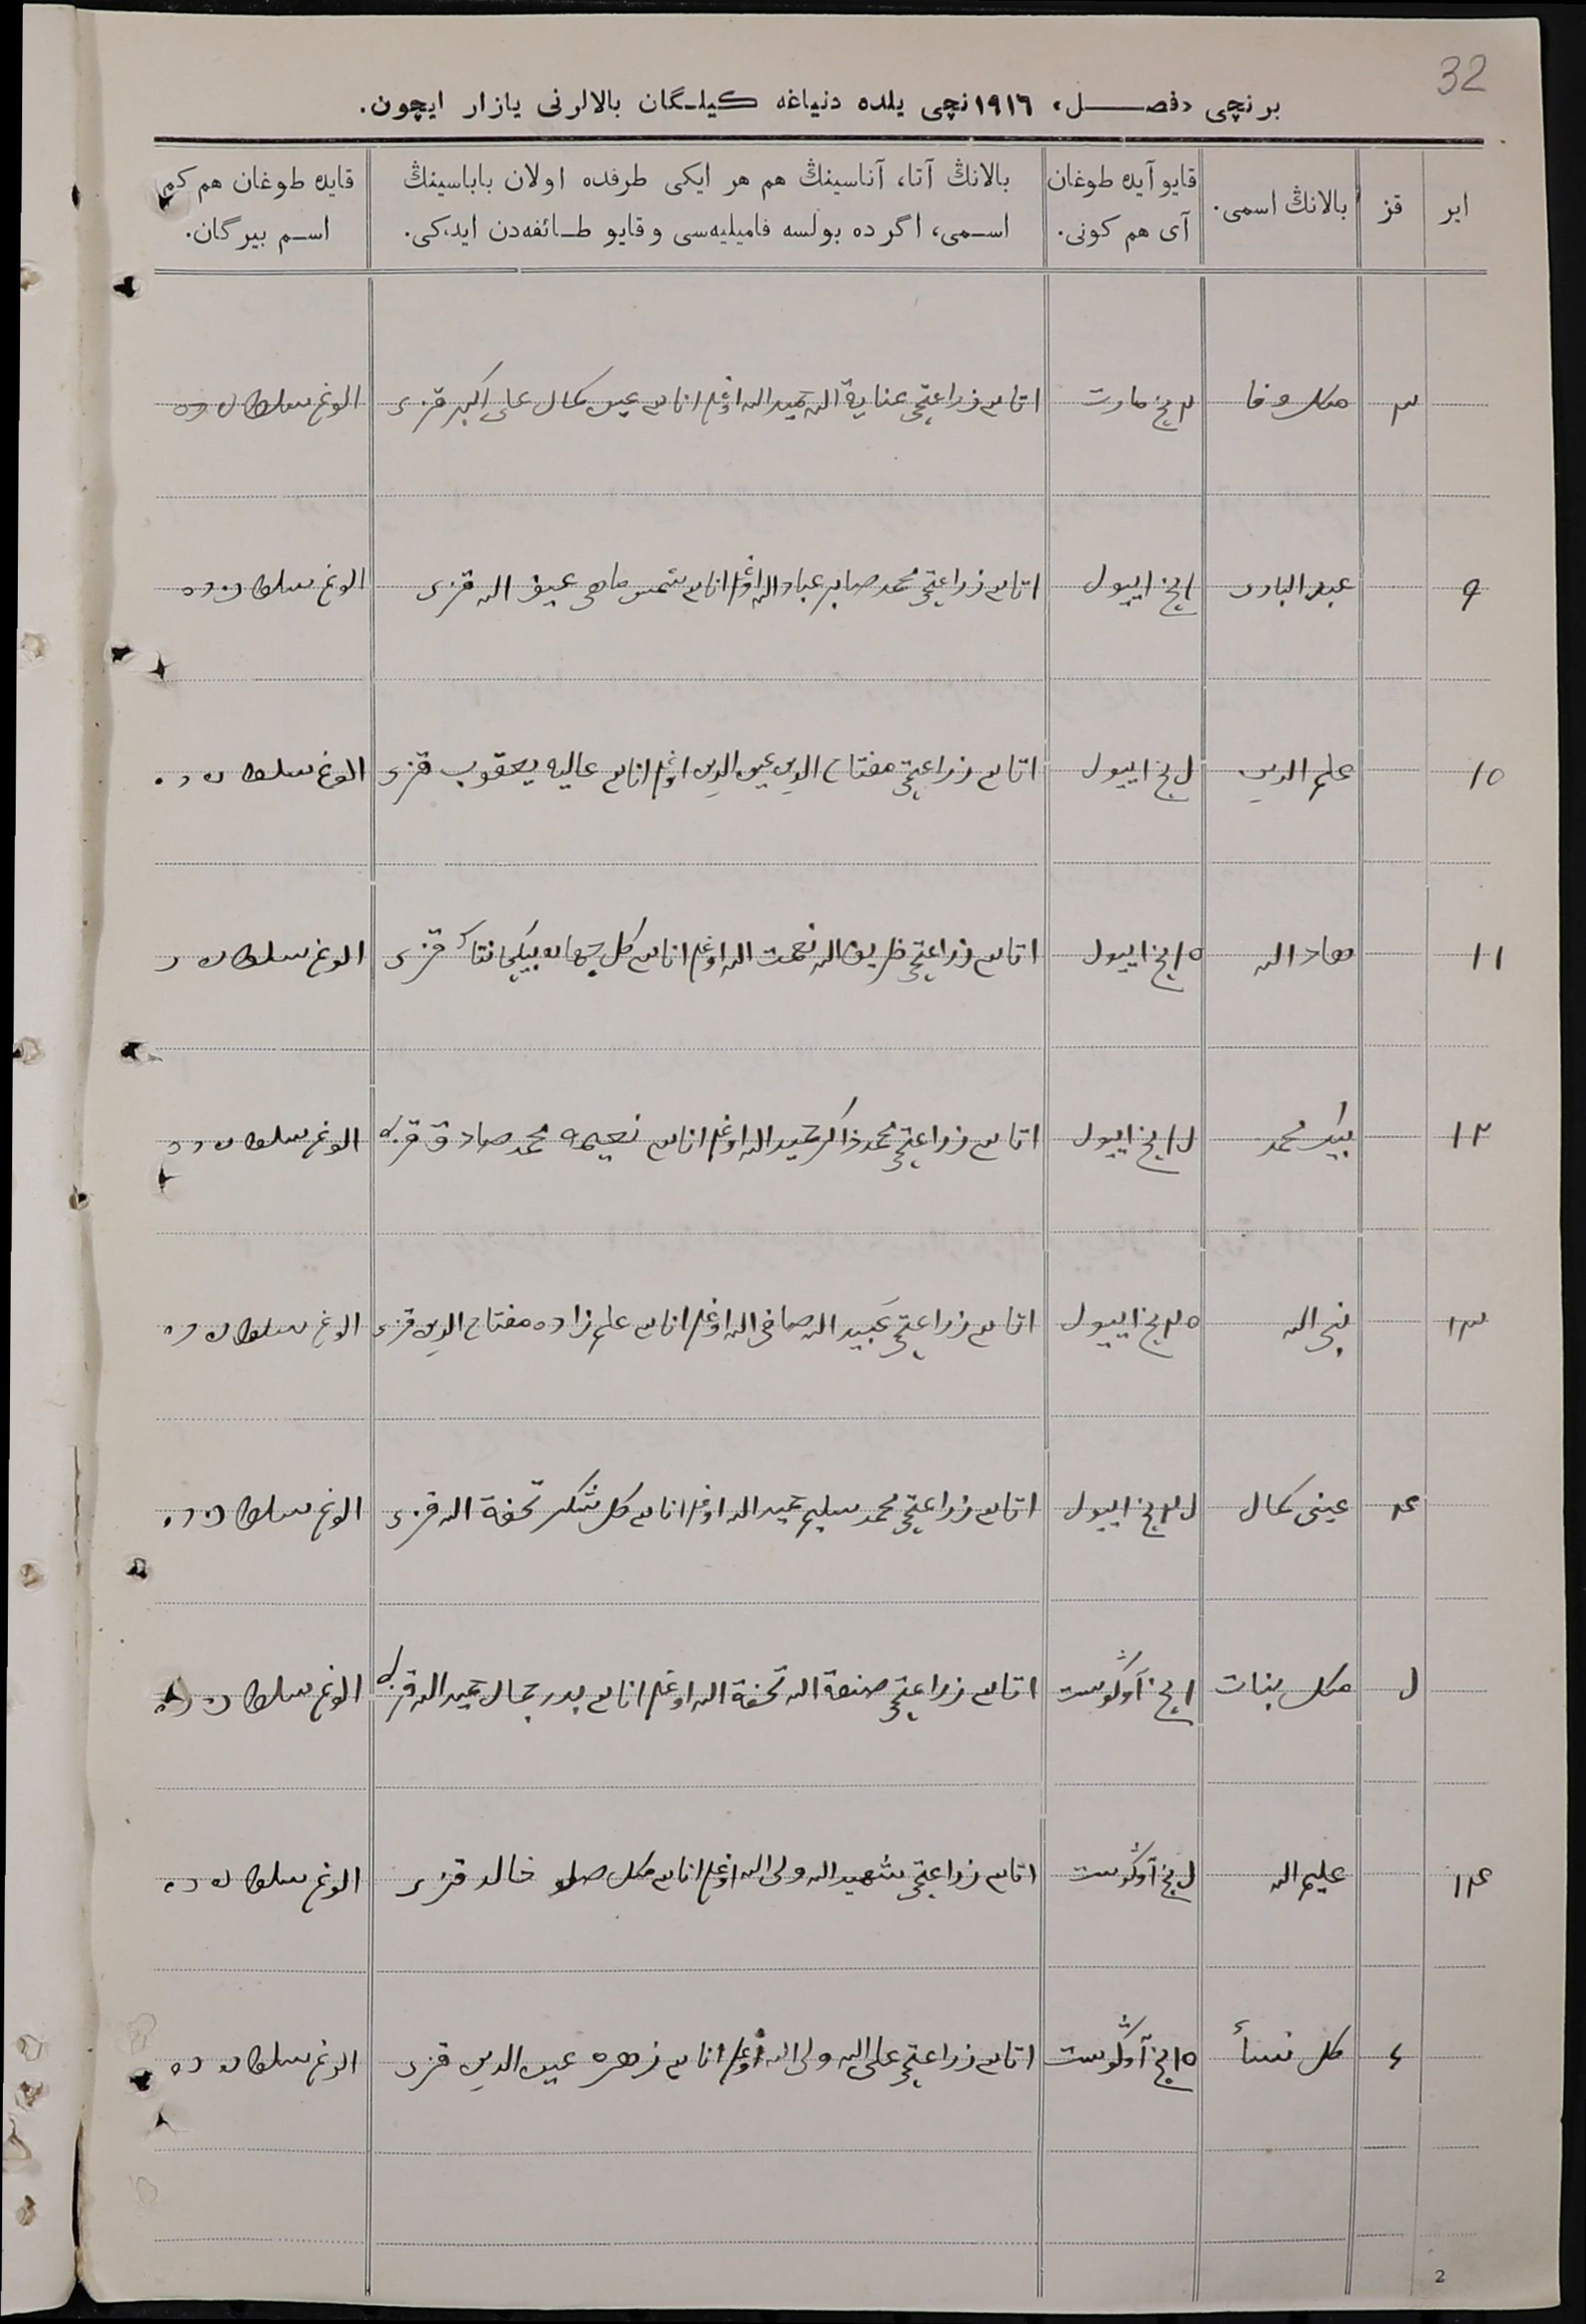 32
برنچی «فصـــل» ١٩١٦نچی يلده دنياغه كيلـگان بالالرنی يازار ايچون.
اير
قز
بالانڭ اسمی.
قايو آيده طوغان
آی هم كونی.
بالانڭ آتا، آناسينڭ هم هر ايكی طرفده اولان باباسينڭ
اسـمی، اگر ده بولسه فاميليه‌سی و قايو طـائفه‌دن ايدكی.
قايده طوغان هم كم
اسـم بيرگان.
٣ مكل وفا مارت اتاسی زراعتچی عناية الله حميد الله اوغلی اناسی عين كمال علی اكبر قزی الوغ سلطان ده
٩ عبد الباری ١ نچی اييول اتاسی زراعتچی محمد صابر عباد الله اوغلی اناسی شمس ماهی الله قزی الوغ سلطان ده
١٥ علم الدين نچی اييول اتاسی زراعتچی مفتاح الدين عين الدين اوغلی اناسی عاليه يعقوب قزی الوغ سلطان ده
١١ هاد الله ١٥ نچی اييول اتاسی زراعتچی ظريف الله نعمت الله اوغلی اناسی كل جهان قزی الوغ سلطان د
١٢ بيك محمد نچی اييول اتاسی زراعتچی محمد ذاكر حميد الله اوغلی اناسی نعيمه محمد صادق قزی الوغ سلطان ده
١٣ الله ٢٥ نچی اييول اتاسی زراعتچی عبيد الله صافی الله اوغلی اناسی علم زاده مفتاح الدين قزی الوغ سلطان ده
عينی كمال نچی اييول اتاسی زراعتچی محمد سليم حميد الله اوغلی اناسی كل شكر تحفة الله قزی الوغ سلطان ده
مكل بنات ١ نچی آوگوست اتاسی زراعتچی صنعة الله تحفة الله اوغلی اناسی بدر جمال حميد الله قزی الوغ سلطان ده
١٤ عليم الله نچی آوگوست اتاسی زراعتچی شهيد الله ولی الله اوغلی اناسی مكل صلو خالد قزی الوغ سلطان ده
كل نسأ ١٥ نچی آوگوست اتاسی زراعتچی علی الله ولی الله اوغلی اناسی زهره عين الدين قزی الوغ سلطان ده
2